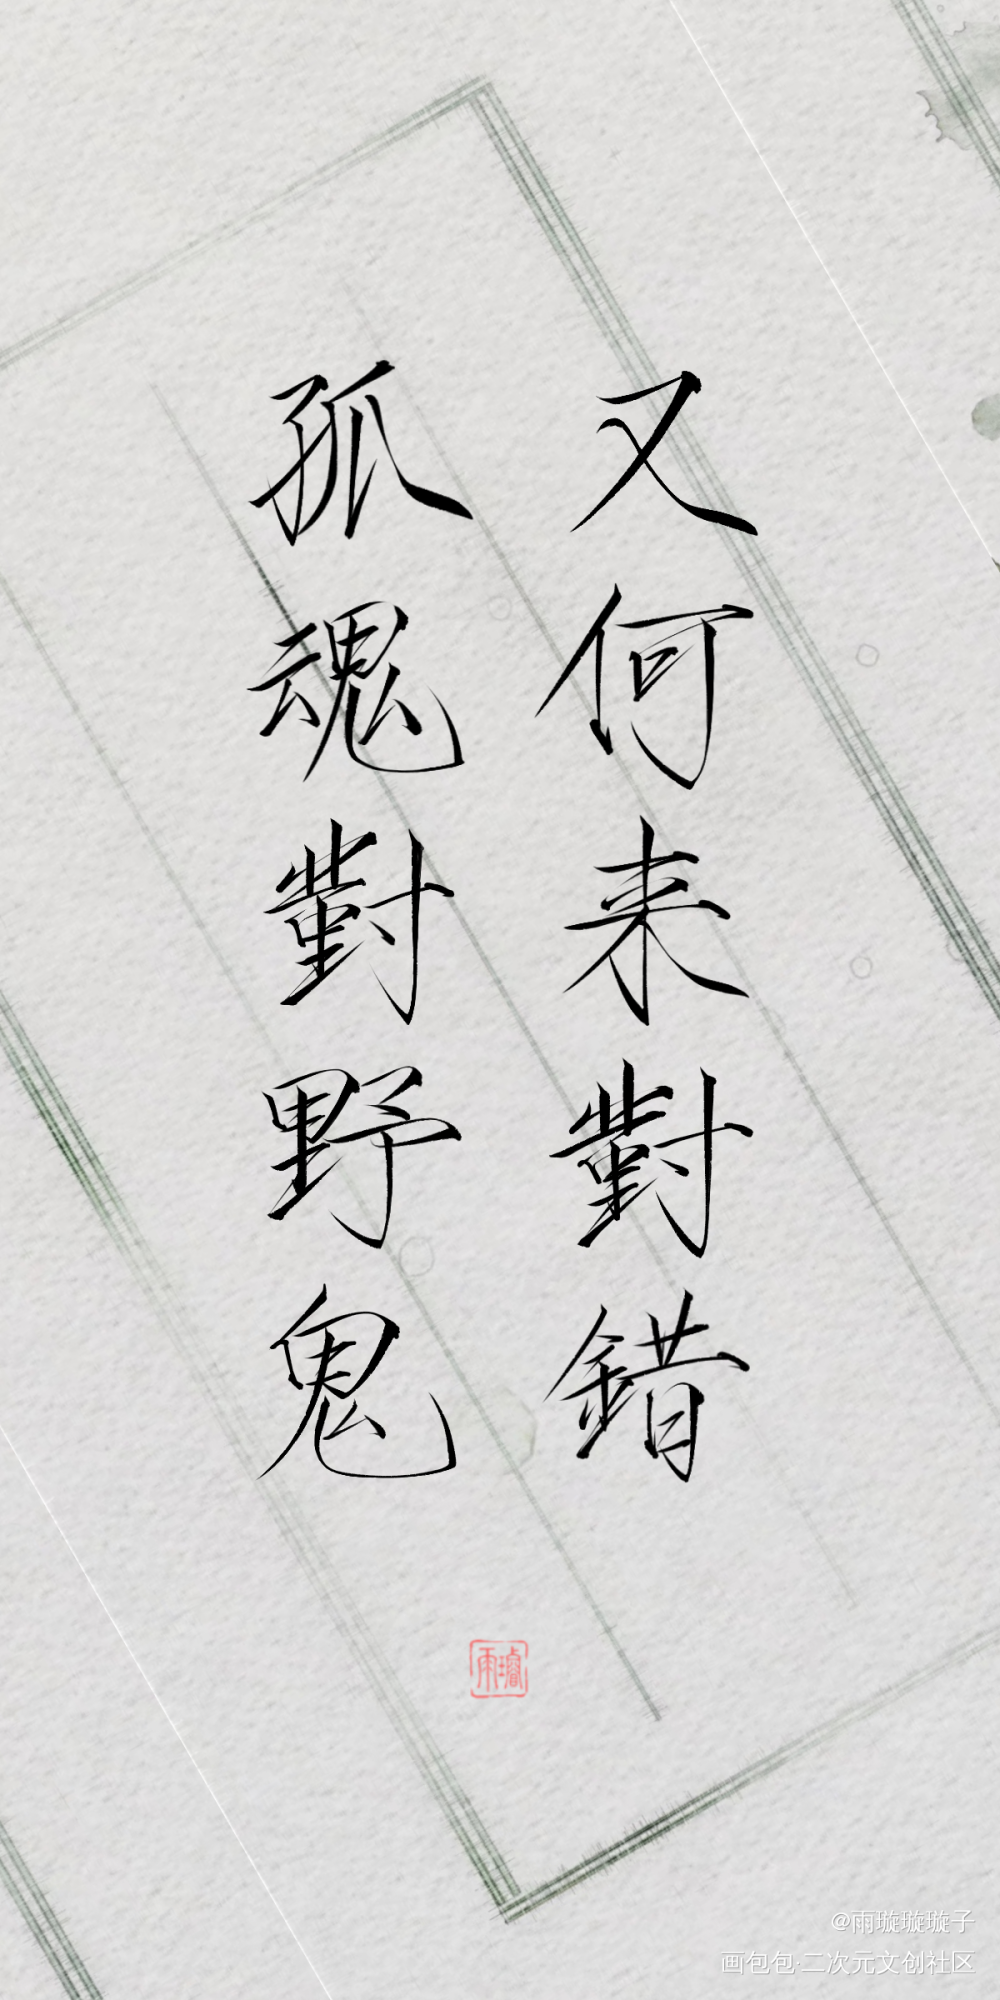 又何来對錯
孤魂對野鬼
雨璿
@雨璇璇璇子
画包包·二次元文创社区